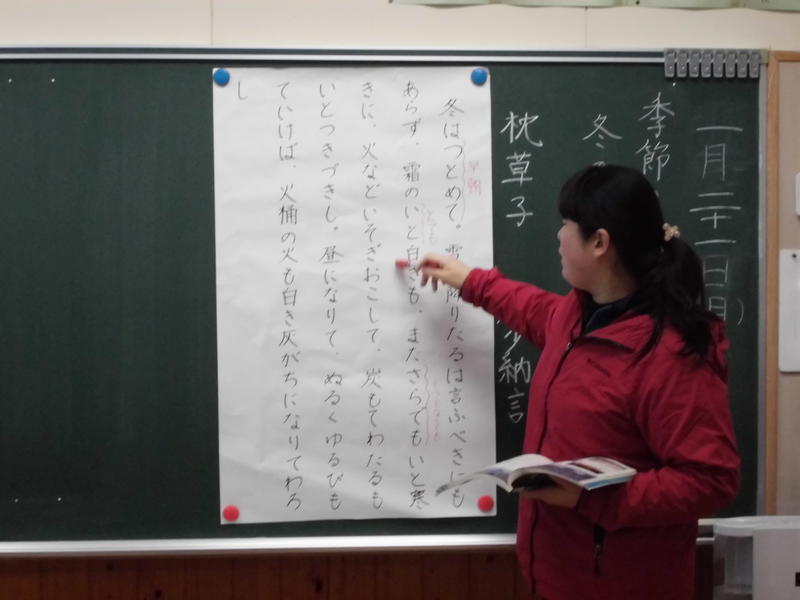 一月二十一日(月)
季節
冬
枕草子
少納言
冬はつとめて。雪 降りたるは言ふべきにも
早朝
あらず、霜のいと白きも、またさらでもいと寒
とても
きに、火などいそぎおこして、炭もてわたるも
いとつきづきし。昼になりて、ぬるくゆるびも
ていけば、火桶の火も白き灰がちになりてわろ
し